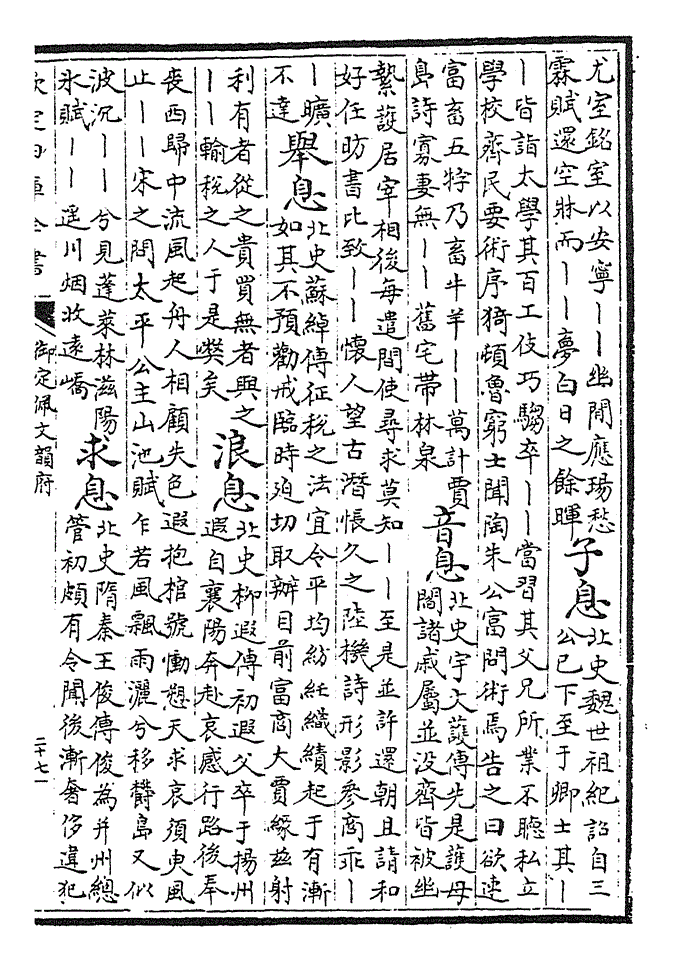 尤室銘室以安寧丨丨幽閒應瑒愁
霖賦還空牀而丨丨夢白日之餘暉
子息
北史魏世祖紀詔自三
公已下至于卿士其丨
丨皆詣太學其百工伎巧騶卒丨丨當習其父兄所業不聽私立
學校齊民要術序猗頓魯窮士聞陶朱公富問術焉告之曰欲速
富畜五牸乃畜牛羊丨丨萬計賈
島詩寡妻無丨丨舊宅帶林泉
音息
北史宇文護傳先是護母
閻諸戚屬並没齊皆被幽
縶護居宰相後每遣間使尋求莫知丨丨至是並許還朝且請和
好任昉書比致丨丨懷人望古潛悵久之陸機詩形影參商乖丨
丨曠
不達
舉息
北史蘇綽傳征税之法宜令平均紡紝織績起于有漸
如其不預勸戒臨時迫切取辦目前富商大賈緣兹射
利有者從之貴買無者與之
丨丨輸稅之人于是弊矣
浪息
北史柳遐傳初遐父卒于揚州
遐自襄陽奔赴哀感行路後奉
喪西歸中流風起舟人相顧失色遐抱棺號慟愬天求哀須臾風
止丨丨宋之問太平公主山池賦乍若風飄雨灑兮移鬱島又似
波沉丨丨兮見蓬萊林滋陽
氷賦丨丨遥川烟收遠嶠
求息
北史隋秦王俊傳俊為并州總
管初頗有令聞後漸奢侈違犯
欽定四庫全書
御定佩文韻府
二十七